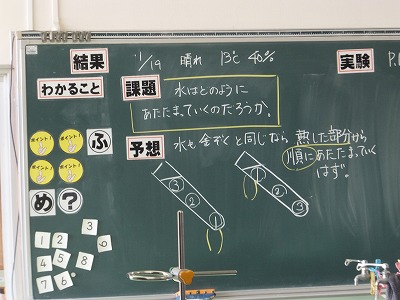 1/19 晴れ 13℃ 40%
結果
わかること
課題
水はどのように
あたたまっていくのだろうか。
実験
予想
水も金ぞくと同じなら 熱した部分から
順にあたたまっていく
はず。
ポイント! ポイント! ふ
ポイント! ポイント!
め ?
③ ②  ①
① ② ③
1 2 3 6
4 5 8
7 6